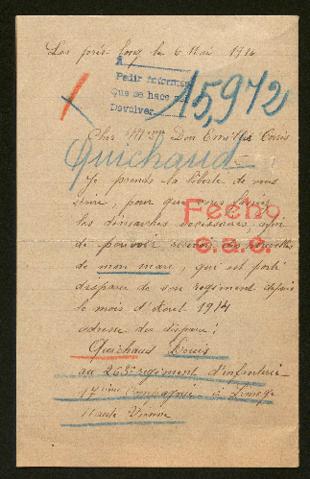 Les prés-long le 6 Mai 1916
A
Pedir informes
Que se hace
Devolver
15,972
Cher Don Emilles
Guichaud
Je prends la liberté de vous
écrire, pour que vous
les démarches nécessaires, afin
Fecho
de pouvoir des nouvelles
e.a.c.
de mon mari, qui est porté
disparu de son regiment depuis
le mois d'Aout 1914
adresse du disparu:
Guichaud Louis
au 263e regiment d'infanterie
17ième Compagnie à Limoge
Haute Vienne